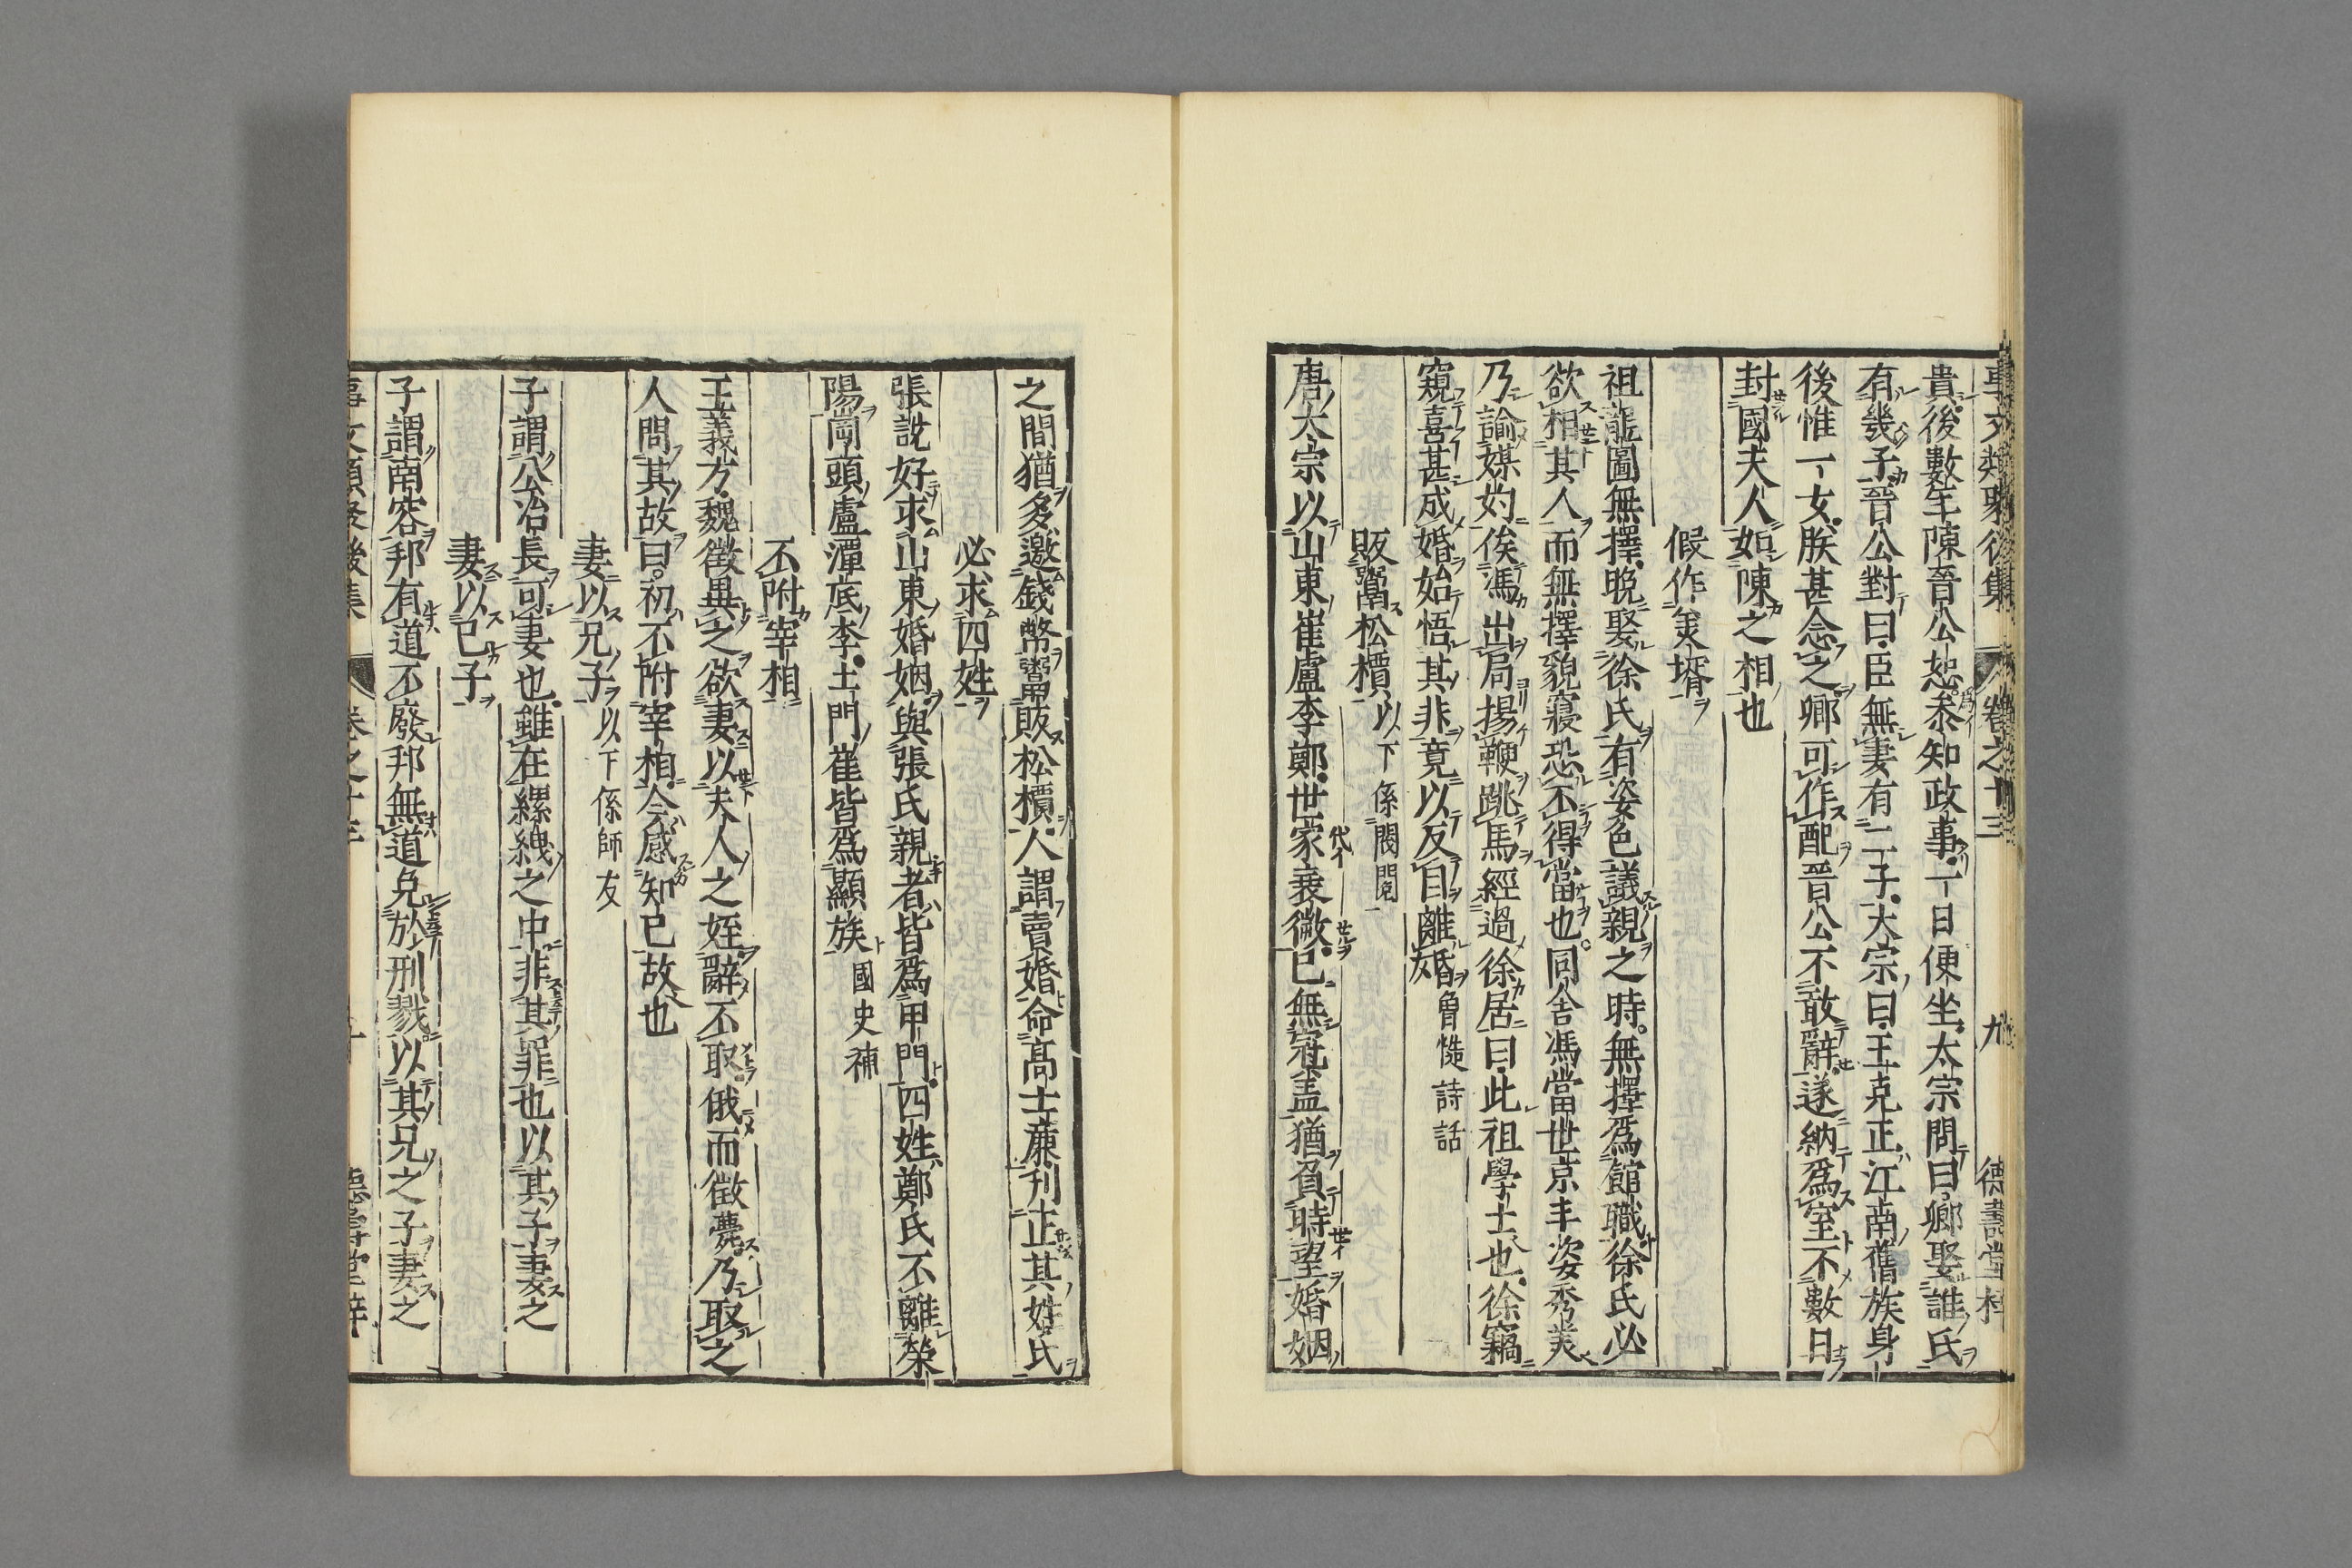 事文類聚後集 卷之十三 九 德壽堂梓
貴後數年陳晉公恕參知政事一日便坐太宗問曰卿娶誰氏
有幾子晉公對曰臣無妻有二子太宗曰王克正江南舊族身
後惟一女朕甚念之卿可作配晉公不敢辭遂納爲室不數日
封國夫人如陳之相也
假作美壻
祖龍圖無擇晩娶徐氏有姿色議親之時無擇爲館職徐氏必
欲相其人而無擇貌寢恐不得當也同舍馮當世京丰姿秀美
乃諭媒妁俟馮出局揚鞭跳馬經過徐居曰此祖學士也徐竊
窺喜甚成婚始悟其非竟以反目離婚 魯慥詩話
販鬻松檟 以下係閥閱
唐太宗以山東崔盧李鄭世家衰微已無冠盖猶負時望婚姻
之間猶多邀錢幣鬻販松檟人謂賣婚命高士廉刋正其姓氏
必求四姓
張説好求山東婚姻與張氏親者皆爲甲門四姓鄭氏不離榮
陽崗頭盧澤底李土門崔皆爲顯族 國史補
不附宰相
王義方魏徵異之欲妻以夫人之姪辭不取俄而徵薨乃取之
人問其故曰初不附宰相今感知已故也
妻以兄子 以下係師友
子謂公冶長可妻也雖在縲絏之中非其罪也以其子妻之
妻以已子
子謂南容邦有道不廢邦無道免於刑戮以其兄之子妻之
事文類聚後集 卷之十三 十 德壽堂梓